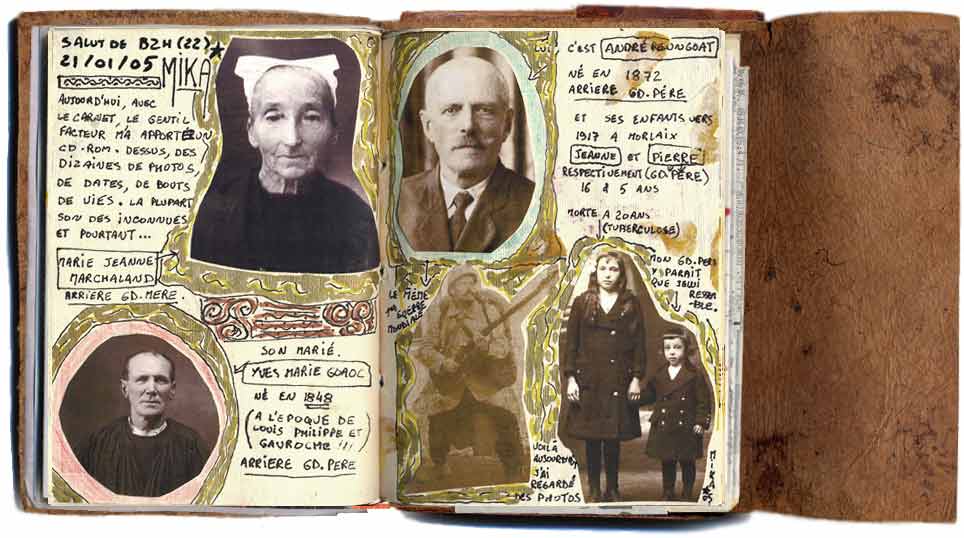 SALUT DE BZH (22)
21/01/05 MIKA
AUJOURD'HUI, AVEC
LE CARNET, LE GENTIL
FACTEUR M'A APPORTÉ UN
CD-ROM. DESSUS, DES
DIZAINES DE PHOTOS,
DE DATES, DE BOUTS
DE VIES. LA PLUPART
SON DES INCONNUES
ET POURTANT...
MARIE JEANNE
MARCHALAND
ARRIERE GD. MERE.
SON MARIÉ.
YVES MARIE
NÉ EN 1848
(A L'EPOQUE DE
LOUIS PHILIPPE ET
GAVROCHE !!!)
ARRIERE GD. PERE
LUI, C'EST ANDRÉ
NÉ EN 1872
ARRIERE GD. PÉRE
ET SES ENFANTS VERS
1917 A MORLAIX
JEANNE ET PIERRE
RESPECTIVEMENT (GD. PÉRE)
16 & 5 ANS
MORTE A 20 ANS
(TUBERCULOSE)
MON GD. PERE
Y PARAIT
QUE JE LUI
RESSEM
-BLE.
LE MÊME
1ere GUERRE
MONDIALE
VOILÀ
AUJOURD'HUI
J'AI
REGARDÉ
DES PHOTOS
MIKA
05